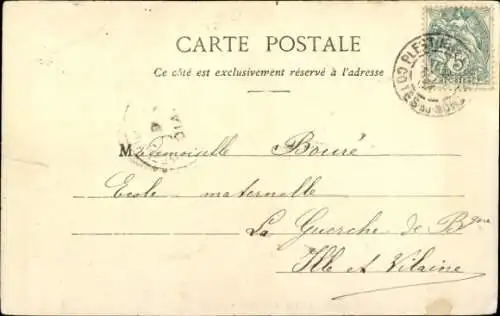 CARTE POSTALE
Ce côté est exclusivement réservé à l'adresse
Mademoiselle Bouré
Ecole maternelle
La Guerche de Bgne
Ille et Vilaine